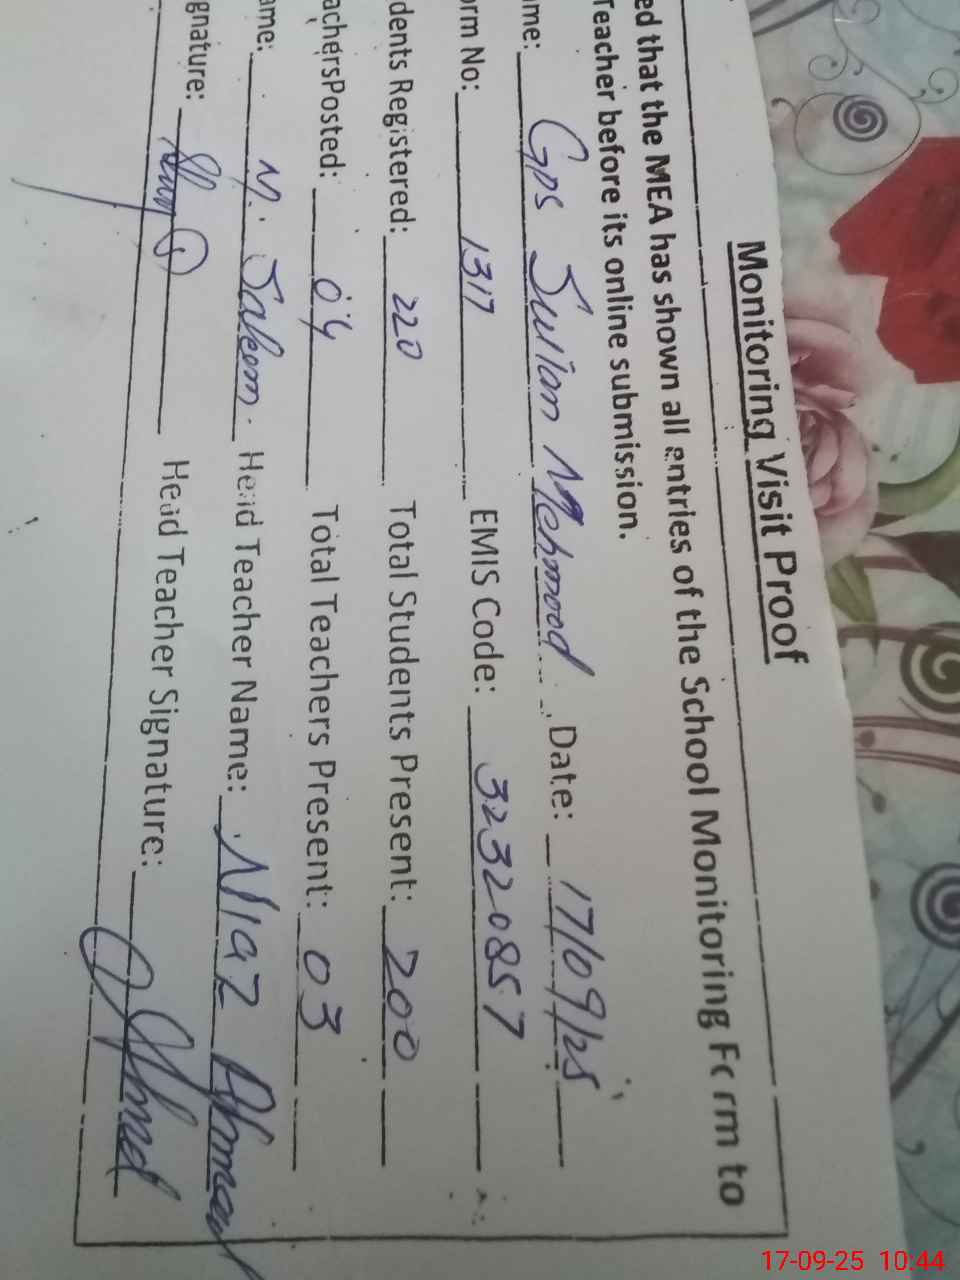 Monitoring Visit Proof
ed that the MEA has shown all entries of the School Monitoring Form to
Teacher before its online submission.
me: Gps Sultan Mehmood Date: 17/09/25
orm No: 1317 EMIS Code: 32320857
dents Registered: 220 Total Students Present: 200
achersPosted: 04 Total Teachers Present: 03
ame: M. Saleem. Head Teacher Name: Niaz Ahmad
gnature: Head Teacher Signature: Ahmed
17-09-25 10:44